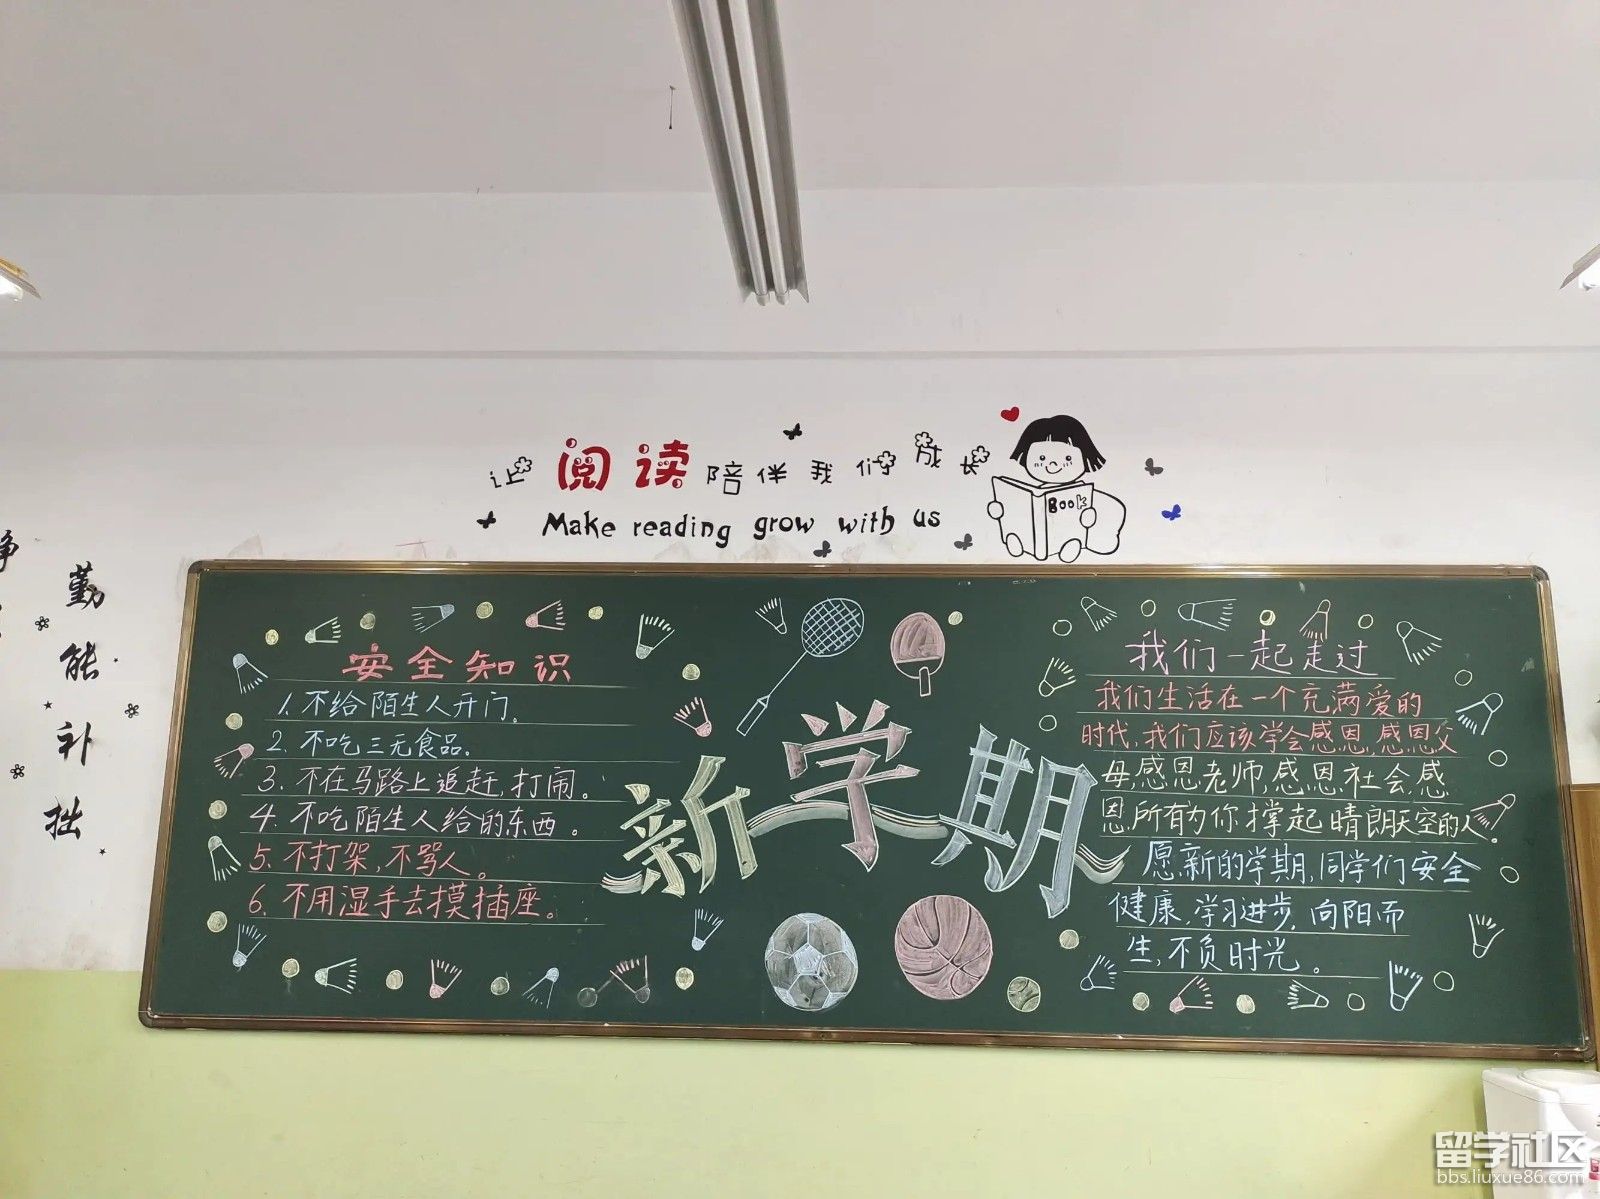 让阅读陪伴我们成长
Make reading grow with us
Book
勤能补拙
安全知识
1. 不给陌生人开门。
2. 不吃三无食品。
3. 不在马路上追赶,打闹。
4. 不吃陌生人给的东西。
5. 不打架,不骂人。
6. 不用湿手去摸插座。
新学期
我们一起走过
我们生活在一个充满爱的
时代,我们应该学会感恩,感恩父
母,感恩老师,感恩社会,感
恩所有为你撑起晴朗天空的人。
愿新的学期,同学们安全
健康,学习进步,向阳而
生,不负时光。
留学社区
bbs.liuxue86.com